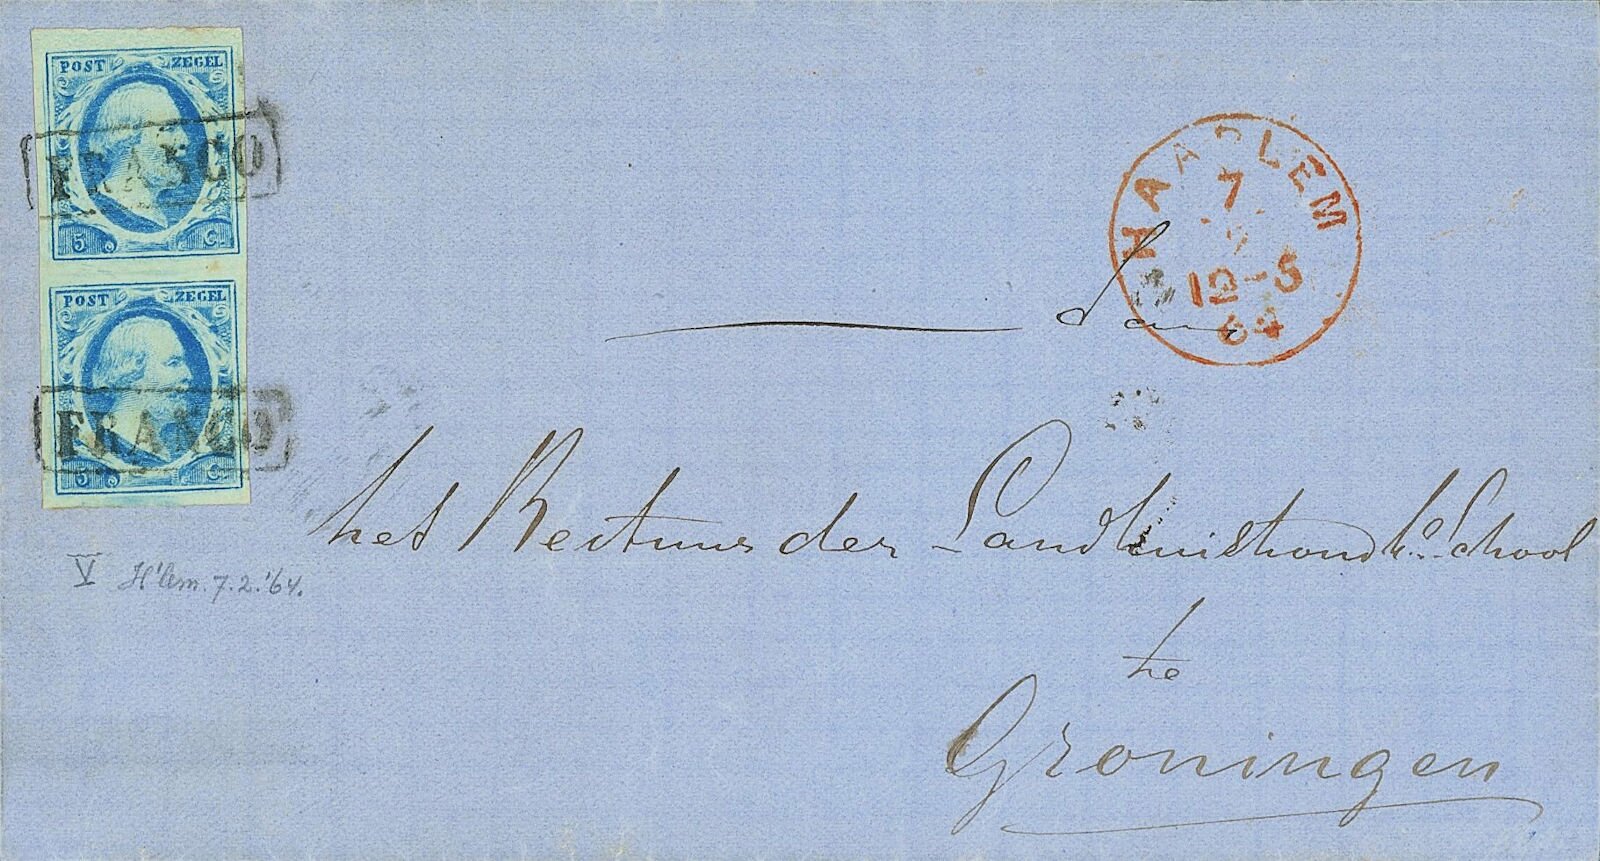 POST ZEGEL
FRANCO
5 C.
POST ZEGEL
FRANCO
5 C.
HAARLEM
7
12-5
64
Aan
het Bestuur der Landhuishoudk. School
te
Groningen
V H'lem. 7.2.'64.